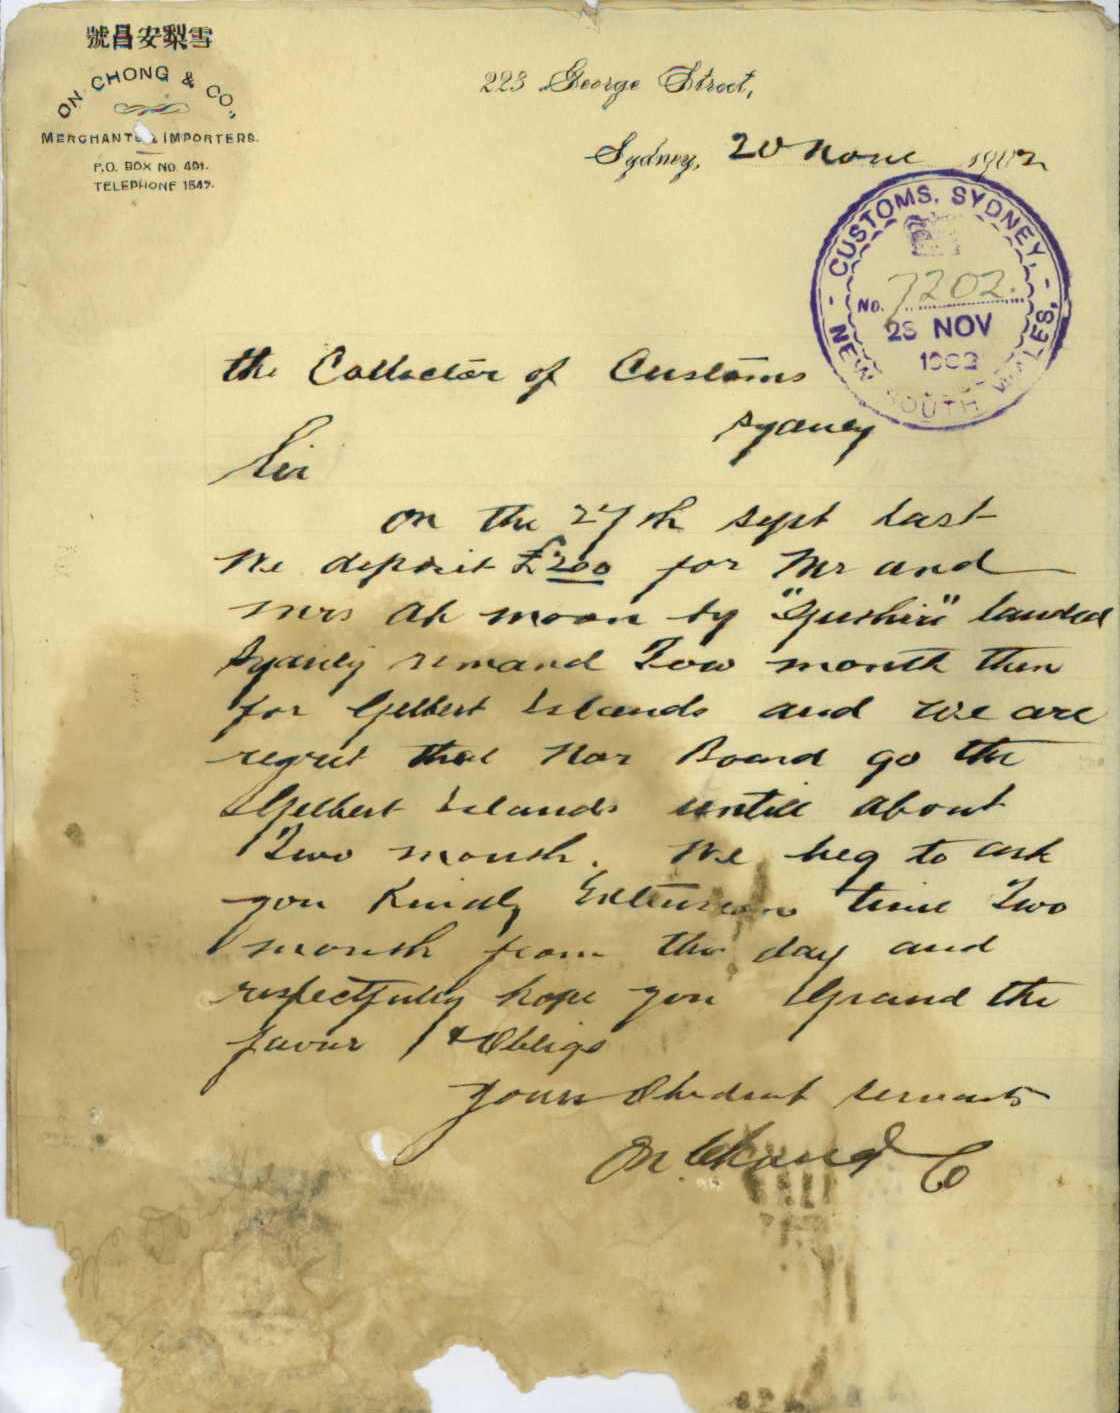 號昌安梨雪
ON CHONG & CO.,
MERCHANTS & IMPORTERS.
P.O. BOX NO. 491.
TELEPHONE 1547.
223 George Street,
Sydney, 20 Nove 1902
CUSTOMS, SYDNEY,
No. 7202.
NOV
1902
NEW SOUTH WALES,
the Collector of Customs
Sydney
Sir
on the 27th Sept last
We deposit £200 for Mr and
Mrs Ah moon by "Gushire" landed
Sydney remand Tow month then
for Gelbert Islands and we are
regret that Nor Board go the
Gelbert Islands untill about
Two month. We beg to ask
you Kindly Extension time Two
month from the day and
respectfully hope you Grand the
favour & Oblige
Yours Obedient servants
On Chong & Co